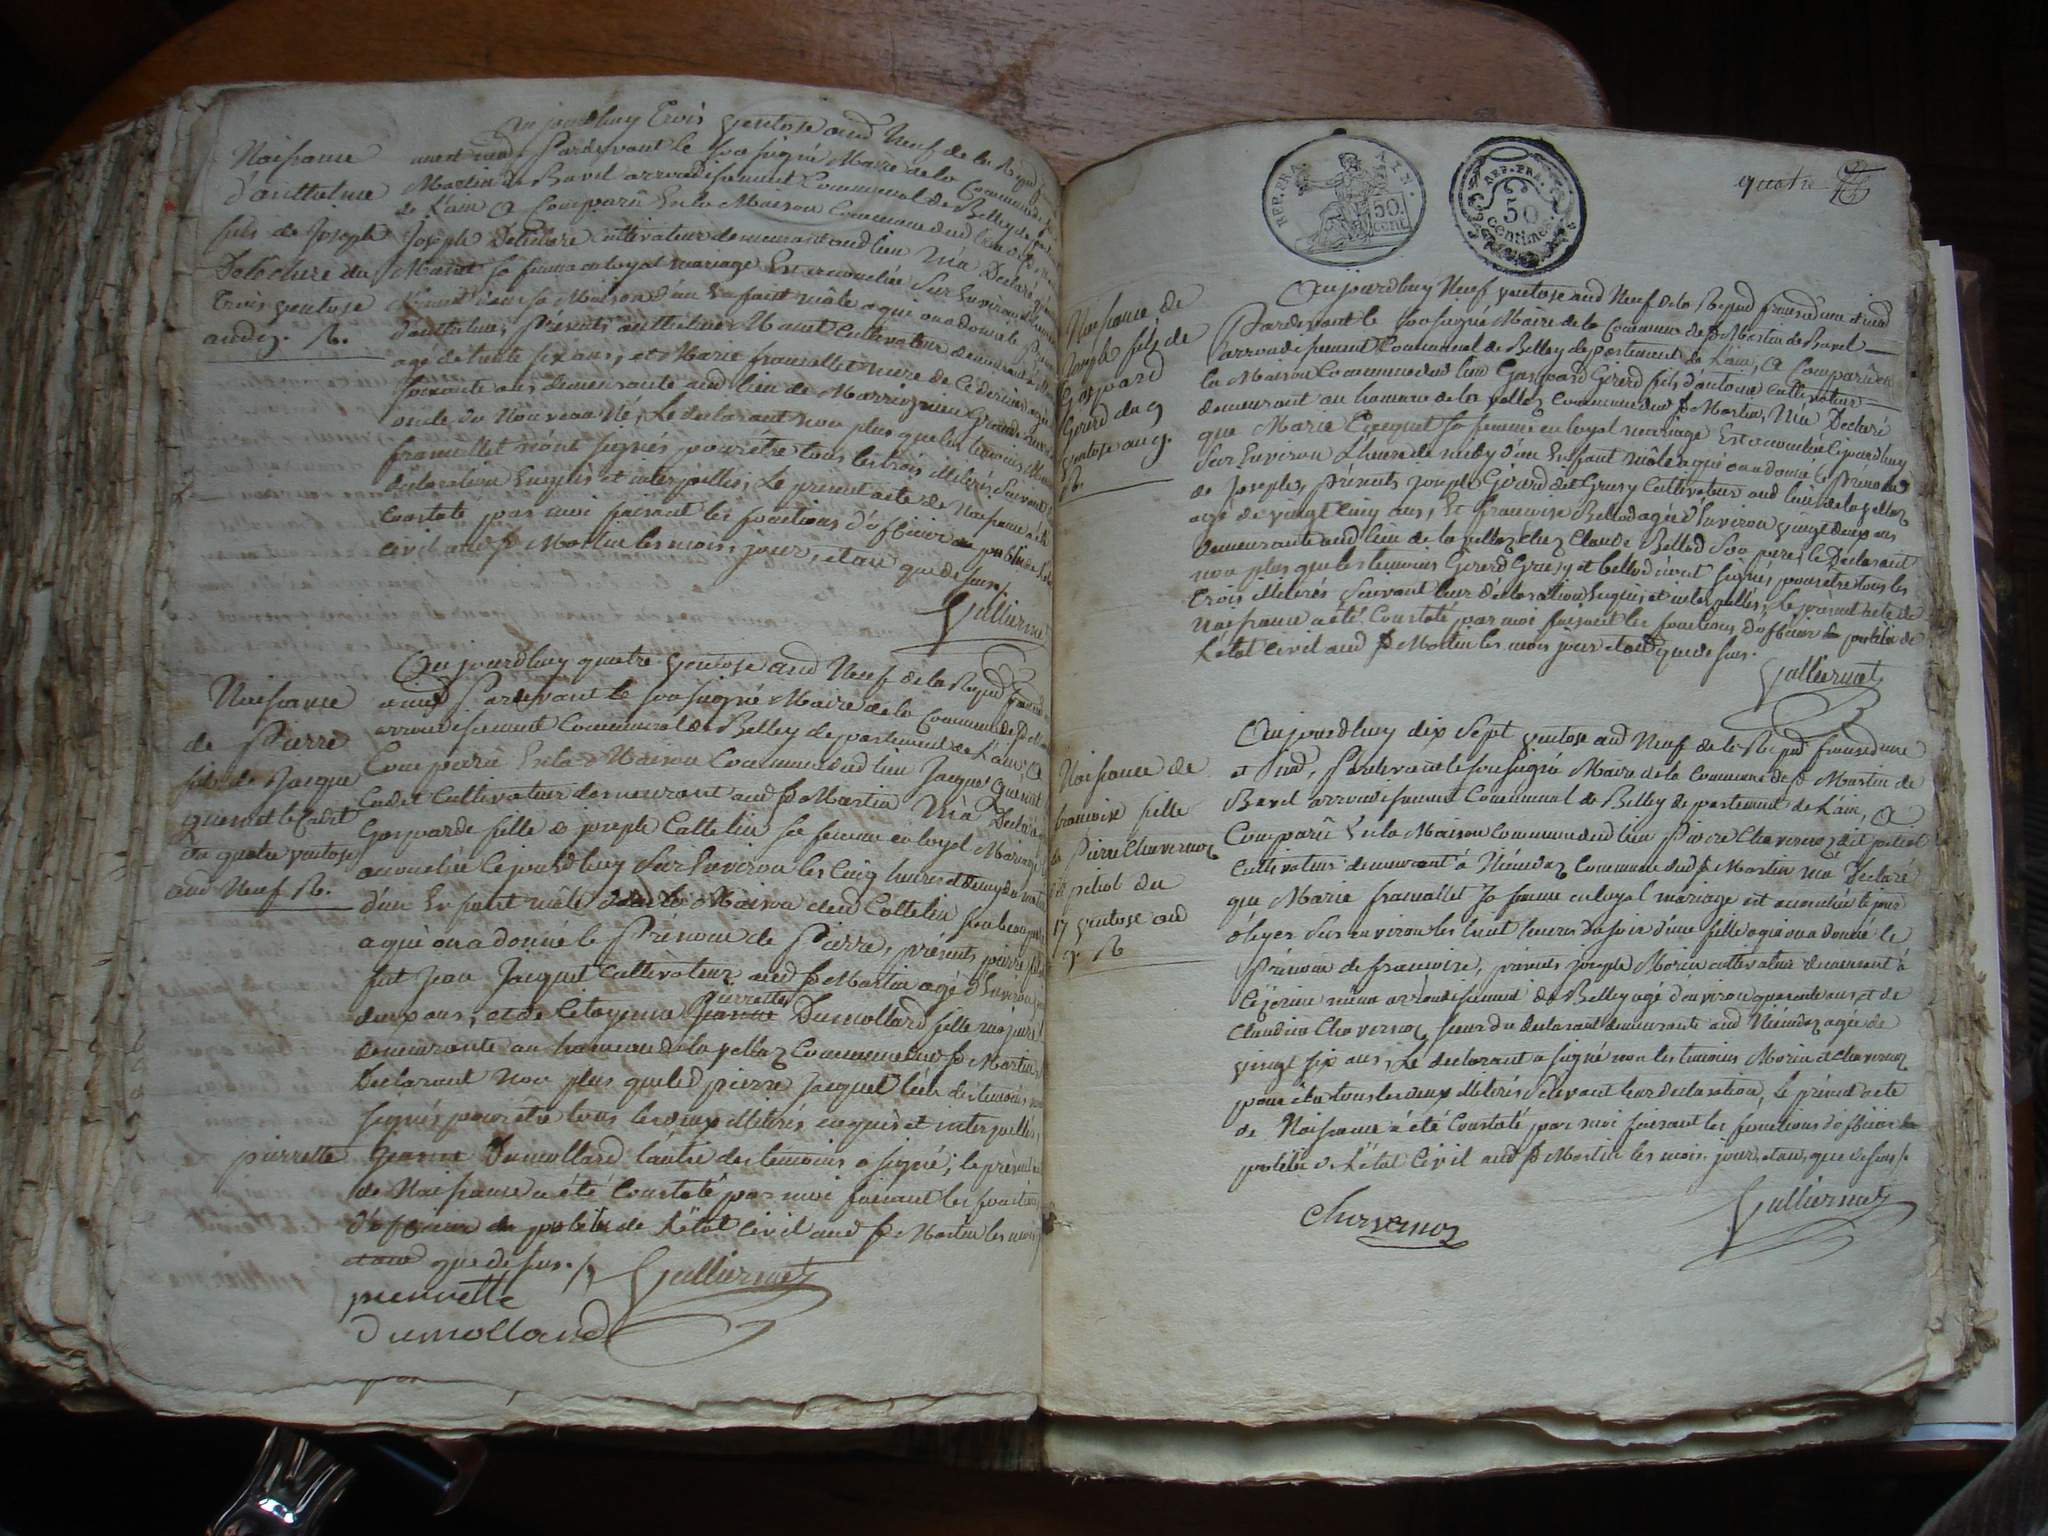 Aujourdhuy Trois ventose aud Neuf de la Repub
Naissance
d'anthelme
fils de Joseph
Delechere du
Trois ventose
an 9. R.
une et ind Pardevant le soussigné Maire de la Commune de
Martin de Bavel arrondissement Communal de Belley
de L'ain a Comparû En la Maison Commune dud lieu
Joseph Delechere cultivateur demeurant aud lieu M'a Declaré
sa femme en loyal mariage Est accouchée Sur Environ
dans sa Maison d'un Enfant mâle a qui on a donné le
d'anthelme, Présents anthelme Cultivateur demeurant
agé de trente six ans, et Marie framillet mere de Ce dernier agée
soixante ans demeurante aud lieu de Marrignieu Grande mere
oncle du Nouveau Né, Le declarant non plus que les temoins
framillet n'ont signés pour être tous les trois illiterés Suivant
declaration Enquis et interpellés, Le présent acte de Naissance a été
Constaté par moi faisant les fonctions d'officier public de
civil aud St Martin les mois, jour, et an que dessus/
Gulliermet
Naissance
de Pierre
fils de Jacque
quenet le Cadet
du quatre ventose
aud Neuf R.
Aujourdhuy quatre ventose aud Neuf de la Repub
et ind Pardevant le soussigné Maire de la Commune de St
arrondissement Communal de Belley departement de L'ain, a
Comparû En la Maison Commune dud lieu Jacque
Cadet Cultivateur demeurant aud St Martin M'a Declaré
Gasparde fille de joseph Cattelin sa femme en loyal Mariage
accouchée Cejourdhuy Sur Environ les Cinq heures et demy du matin
d'un Enfant mâle dans la Maison dud Cattelin
a qui on a donné le Prénom de Pierre, présents pierre
fut Jean Jacquet Cultivateur aud St Martin agé d'Environ
deux ans, et de Citoyenne Jeanne pierrette Dumollard fille majeure
demeurante au hameau de la vellaz Commune dud St Martin
Declarant Non plus que led pierre jacquet l'un des temoins
signés pour être tous les deux illiterés enquis et interpellés,
pierrette Jeanne Dumollard l'autre des temoins a signé; le présent
de Naissance a été Constaté par moi faisant les fonctions
d'officier public de L'état Civil aud St Martin les mois
et an que dessus./.
Gulliermet
pierrette
dumollard
REP. FRA. AIN.
50 cent
REP. FRA.
50
centimes
quatre
Naissance de
Joseph fils de
Gaspard
Gérard du 9
ventose an 9.
R.
Aujourdhuy Neuf ventose aud Neuf de la Repub française une et ind
Pardevant le soussigné Maire de la Commune de St Martin de Bavel
arrondissement Communal de Belley departement de L'ain, a Comparû en
la Maison Commune dud lieu Gaspard Gérard fils d'antoine cultivateur
demeurant au hameau de la vellaz Commune dud St Martin, M'a Declaré
que Marie sa femme en loyal mariage Est accouchée Cejourdhuy
Sur Environ L'heure de midy d'un Enfant mâle a qui on a donné le Prénom
de Joseph, présents joseph Gérard dit Grusy Cultivateur aud lieu de la vellaz
agé de vingt cinq ans, Et françoise Bellod agée d'Environ vingt deux ans
demeurante aud lieu de la vellaz chez Claude Bellod Son pere, le Declarant
non plus que les temoins Gérard Grusy et bellod n'ont signés pour être tous les
trois illiterés Suivant leur declaration Enquis, et interpellés, Le présent acte de
Naissance a été Constaté par moi faisant les fonctions d'officier public de
L'état Civil aud St Martin les mois jour et an que dessus.
Gulliermet
Naissance de
francoise fille
de Pierre Chavernoz
dit petiot du
17 ventose an
9 R
Aujourdhuy dix Sept ventose aud Neuf de la Repub francaise une
et Ind, Pardevant le soussigné Maire de la Commune de St Martin de
Bavel arrondissement Communal de Belley departement de L'ain, a
Comparû En la Maison Commune dud lieu Pierre Chavernoz dit petiot
Cultivateur demeurant à Commune dud St Martin m'a Declaré
que Marie framillet sa femme en loyal mariage est accouchée le jour
d'hyer Sur environ les huit heures du soir d'une fille a qui on a donné le
Prénom de francoise, présents joseph Morin cultivateur demeurant à
Ceyzerieu même arrondissement de Belley agé d'environ quarente ans, et de
Claudine Chavernoz soeur du declarant demeurante aud agée de
vingt six ans, Le declarant a signé non les temoins Morin et chavernoz
pour être tous les deux illiterés Suivant leur declaration, Le présent acte
de Naissance a été Constaté par moi faisant les fonctions d'officier
public de L'état Civil aud St Martin les mois, jour, et an, que dessus/.
Chavernoz
Gulliermet